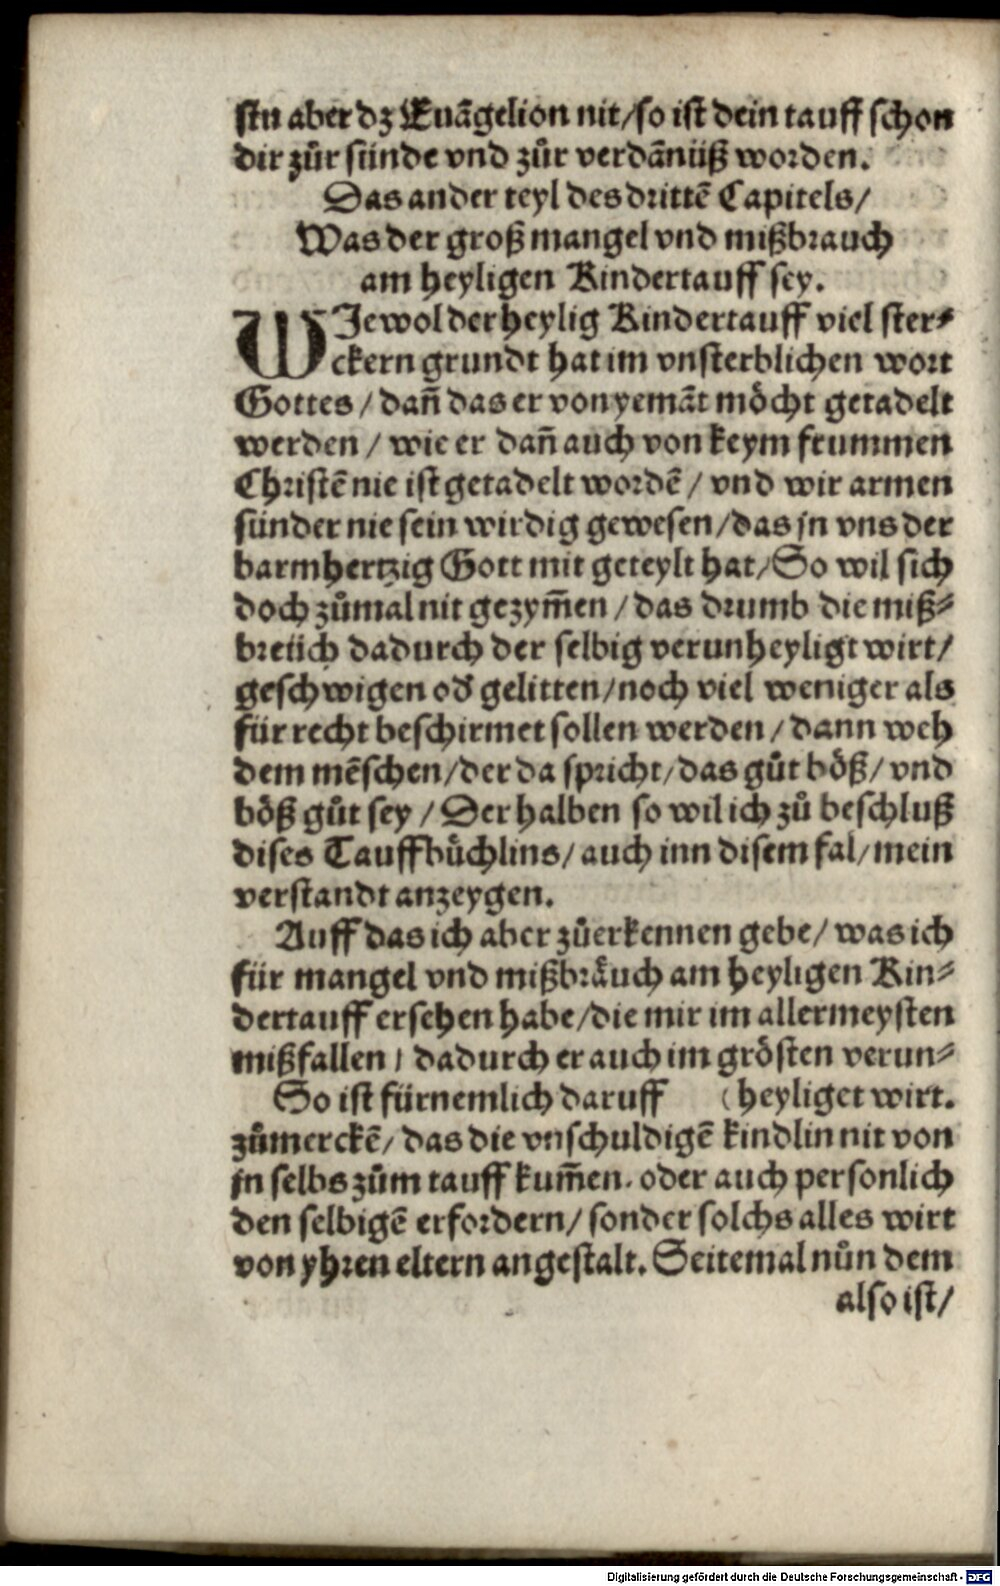 stu aber dz Euãgelion nit/so ist dein tauff schon
dir zůr sünde vnd zůr verdãnüß worden.
Das ander teyl des drittẽ Capitels/
Was der groß mangel vnd mißbrauch
am heyligen Kindertauff sey.
WJewol der heylig Kindertauff viel ster⸗
ckern grundt hat im vnsterblichen wort
Gottes / dañ das er von yemãt möcht getadelt
werden / wie er dañ auch von keym frummen
Christẽ nie ist getadelt wordẽ / vnd wir armen
sünder nie sein wirdig gewesen/das jn vns der
barmhertzig Gott mit geteylt hat/So wil sich
doch zůmal nit gezym̃en / das drumb die miß⸗
breüch dadurch der selbig verunheyligt wirt/
geschwigen oď gelitten/noch viel weniger als
für recht beschirmet sollen werden / dann weh
dem mẽschen/der da spricht/das gůt böß/ vnd
böß gůt sey / Der halben so wil ich zů beschluß
dises Tauffbůchlins/ auch inn disem fal/mein
verstandt anzeygen.
Auff das ich aber zůerkennen gebe/ was ich
für mangel vnd mißbräuch am heyligen Kin⸗
dertauff ersehen habe/die mir im allermeysten
mißfallen / dadurch er auch im grösten verun⸗
So ist fürnemlich daruff (heyliget wirt.
zůmerckẽ/ das die vnschuldigẽ kindlin nit von
jn selbs zům tauff kum̃en. oder auch personlich
den selbigẽ erfordern/ sonder solchs alles wirt
von yhren eltern angestalt. Seitemal nůn dem
also ist/
Digitalisierung gefördert durch die Deutsche Forschungsgemeinschaft - DFG